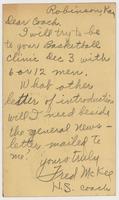 Robinson, Kan
Dear Coach,
I will try to be
to your Basketball
clinic Dec 3 with
6 or 12 men.
What other
letter of introduction
will I need beside
the general news-
letter mailed to
me?
Yours truly
Fred McKee
H.S. coach